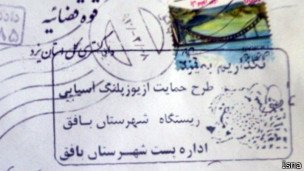 قوه قضائیه
دادگستری کل استان یزد
نگذاریم بمیرد
طرح حمایت ازیوزپلنگ آسیایی
ریستگاه شهرستان بافق
اداره پست شهرستان بافق
isna